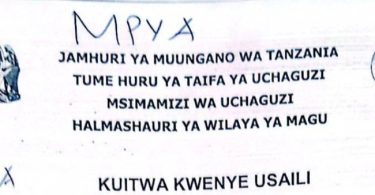 MPYA
JAMHURI YA MUUNGANO WA TANZANIA
TUME HURU YA TAIFA YA UCHAGUZI
MSIMAMIZI WA UCHAGUZI
HALMASHAURI YA WILAYA YA MAGU
KUITWA KWENYE USAILI